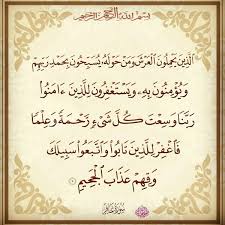 بسم الله الرحمن الرحيم
ٱلَّذِينَ يَحْمِلُونَ ٱلْعَرْشَ وَمَنْ حَوْلَهُۥ يُسَبِّحُونَ بِحَمْدِ رَبِّهِمْ
وَيُؤْمِنُونَ بِهِۦ وَيَسْتَغْفِرُونَ لِلَّذِينَ ءَامَنُوا۟
رَبَّنَا وَسِعْتَ كُلَّ شَىْءٍ رَّحْمَةً وَعِلْمًا
فَٱغْفِرْ لِلَّذِينَ تَابُوا۟ وَٱتَّبَعُوا۟ سَبِيلَكَ
وَقِهِمْ عَذَابَ ٱلْجَحِيمِ
سورة غافر